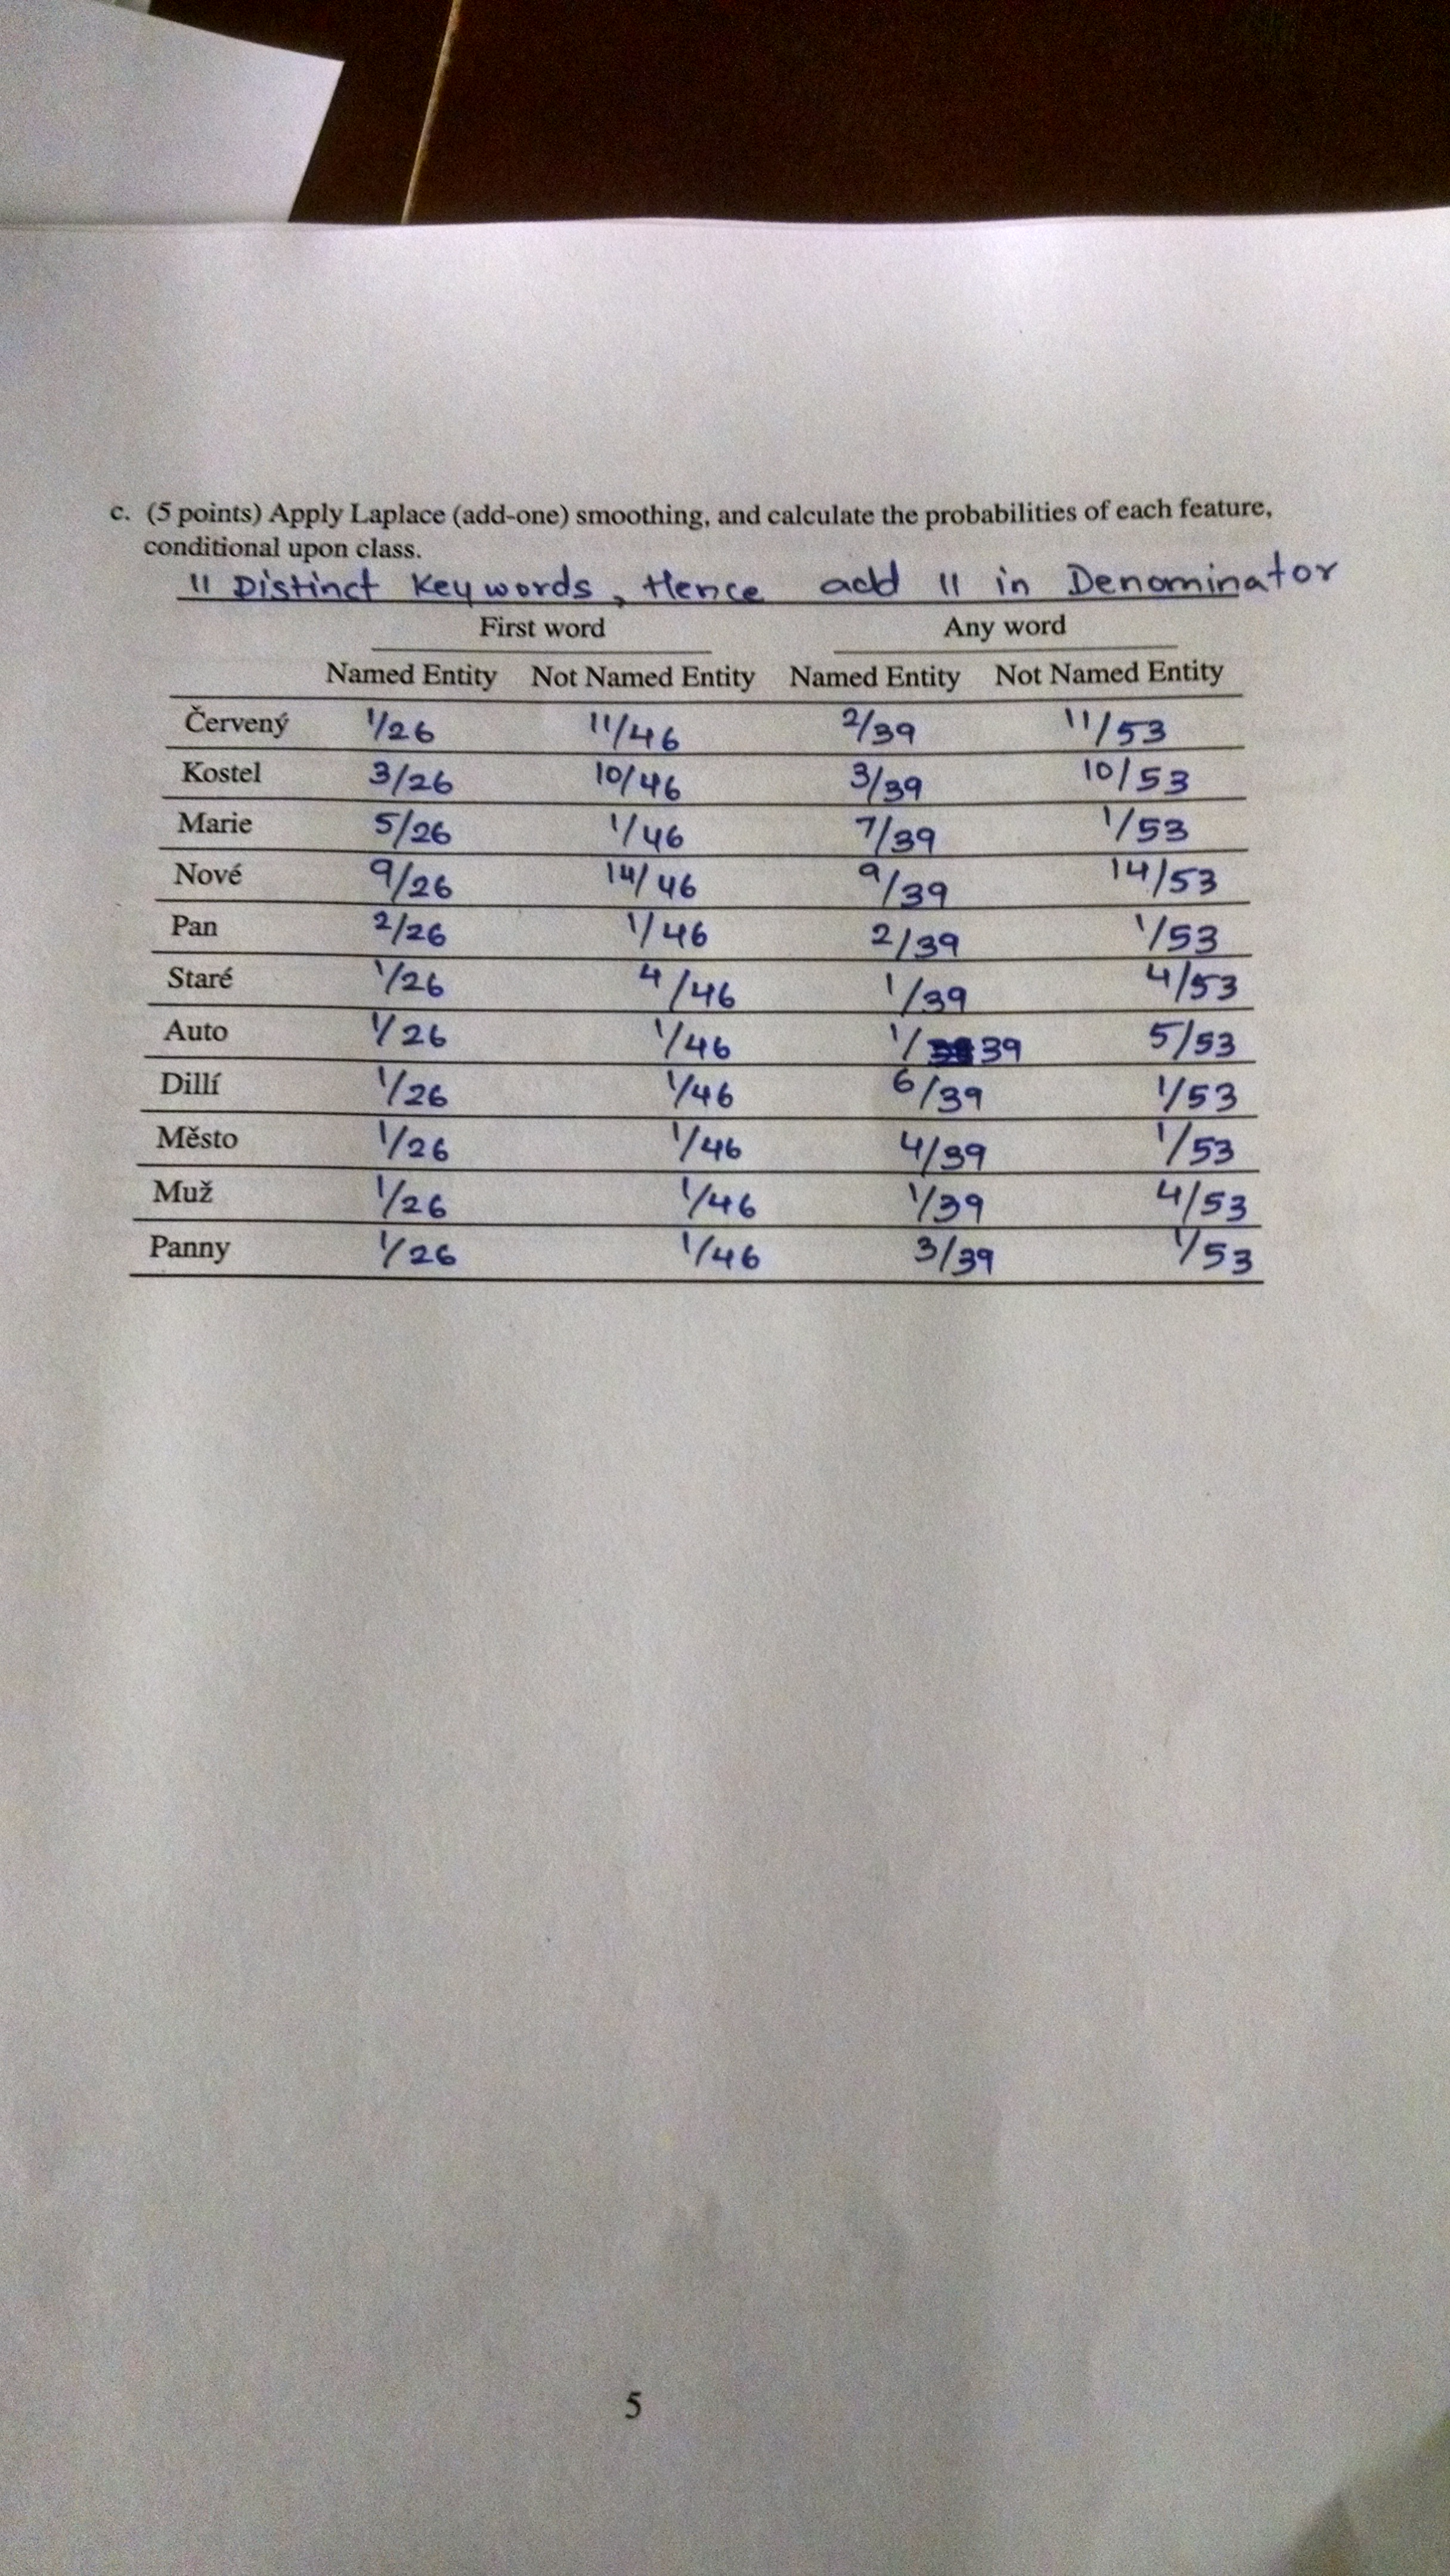 c. (5 points) Apply Laplace (add-one) smoothing, and calculate the probabilities of each feature,
conditional upon class.
11 Distinct Keywords, Hence add 11 in Denominator
First word Any word
Named Entity Not Named Entity Named Entity Not Named Entity
Červený 1/26 11/46 2/39 11/53
Kostel 3/26 10/46 3/39 10/53
Marie 5/26 1/46 7/39 1/53
Nové 9/26 14/46 9/39 14/53
Pan 2/26 1/46 2/39 1/53
Staré 1/26 4/46 1/39 4/53
Auto 1/26 1/46 1/39 5/53
Dillí 1/26 1/46 6/39 1/53
Město 1/26 1/46 4/39 1/53
Muž 1/26 1/46 1/39 4/53
Panny 1/26 1/46 3/39 1/53
5